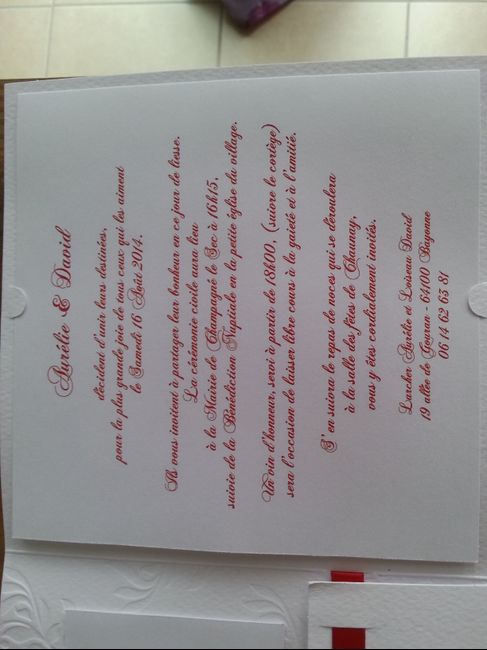 Aurélie & David
décident d'unir leurs destinées,
pour la plus grande joie de tous ceux qui les aiment
le Samedi 16 Août 2014.
Ils vous invitent à partager leur bonheur en ce jour de liesse.
La cérémonie civile aura lieu
à la Mairie de Champagné le Sec à 16h15,
suivie de la Bénédiction Nuptiale en la petite église du village.
Un vin d'honneur, servi à partir de 18h00, (suivre le cortège)
sera l'occasion de laisser libre cours à la gaieté et à l'amitié.
S'en suivra le repas de noces qui se déroulera
à la salle des fêtes de Chaunay,
vous y êtes cordialement invités.
Larcher Aurélie et Loiseau David
19 allée de - 64100 Bayonne
06 14 62 65 81